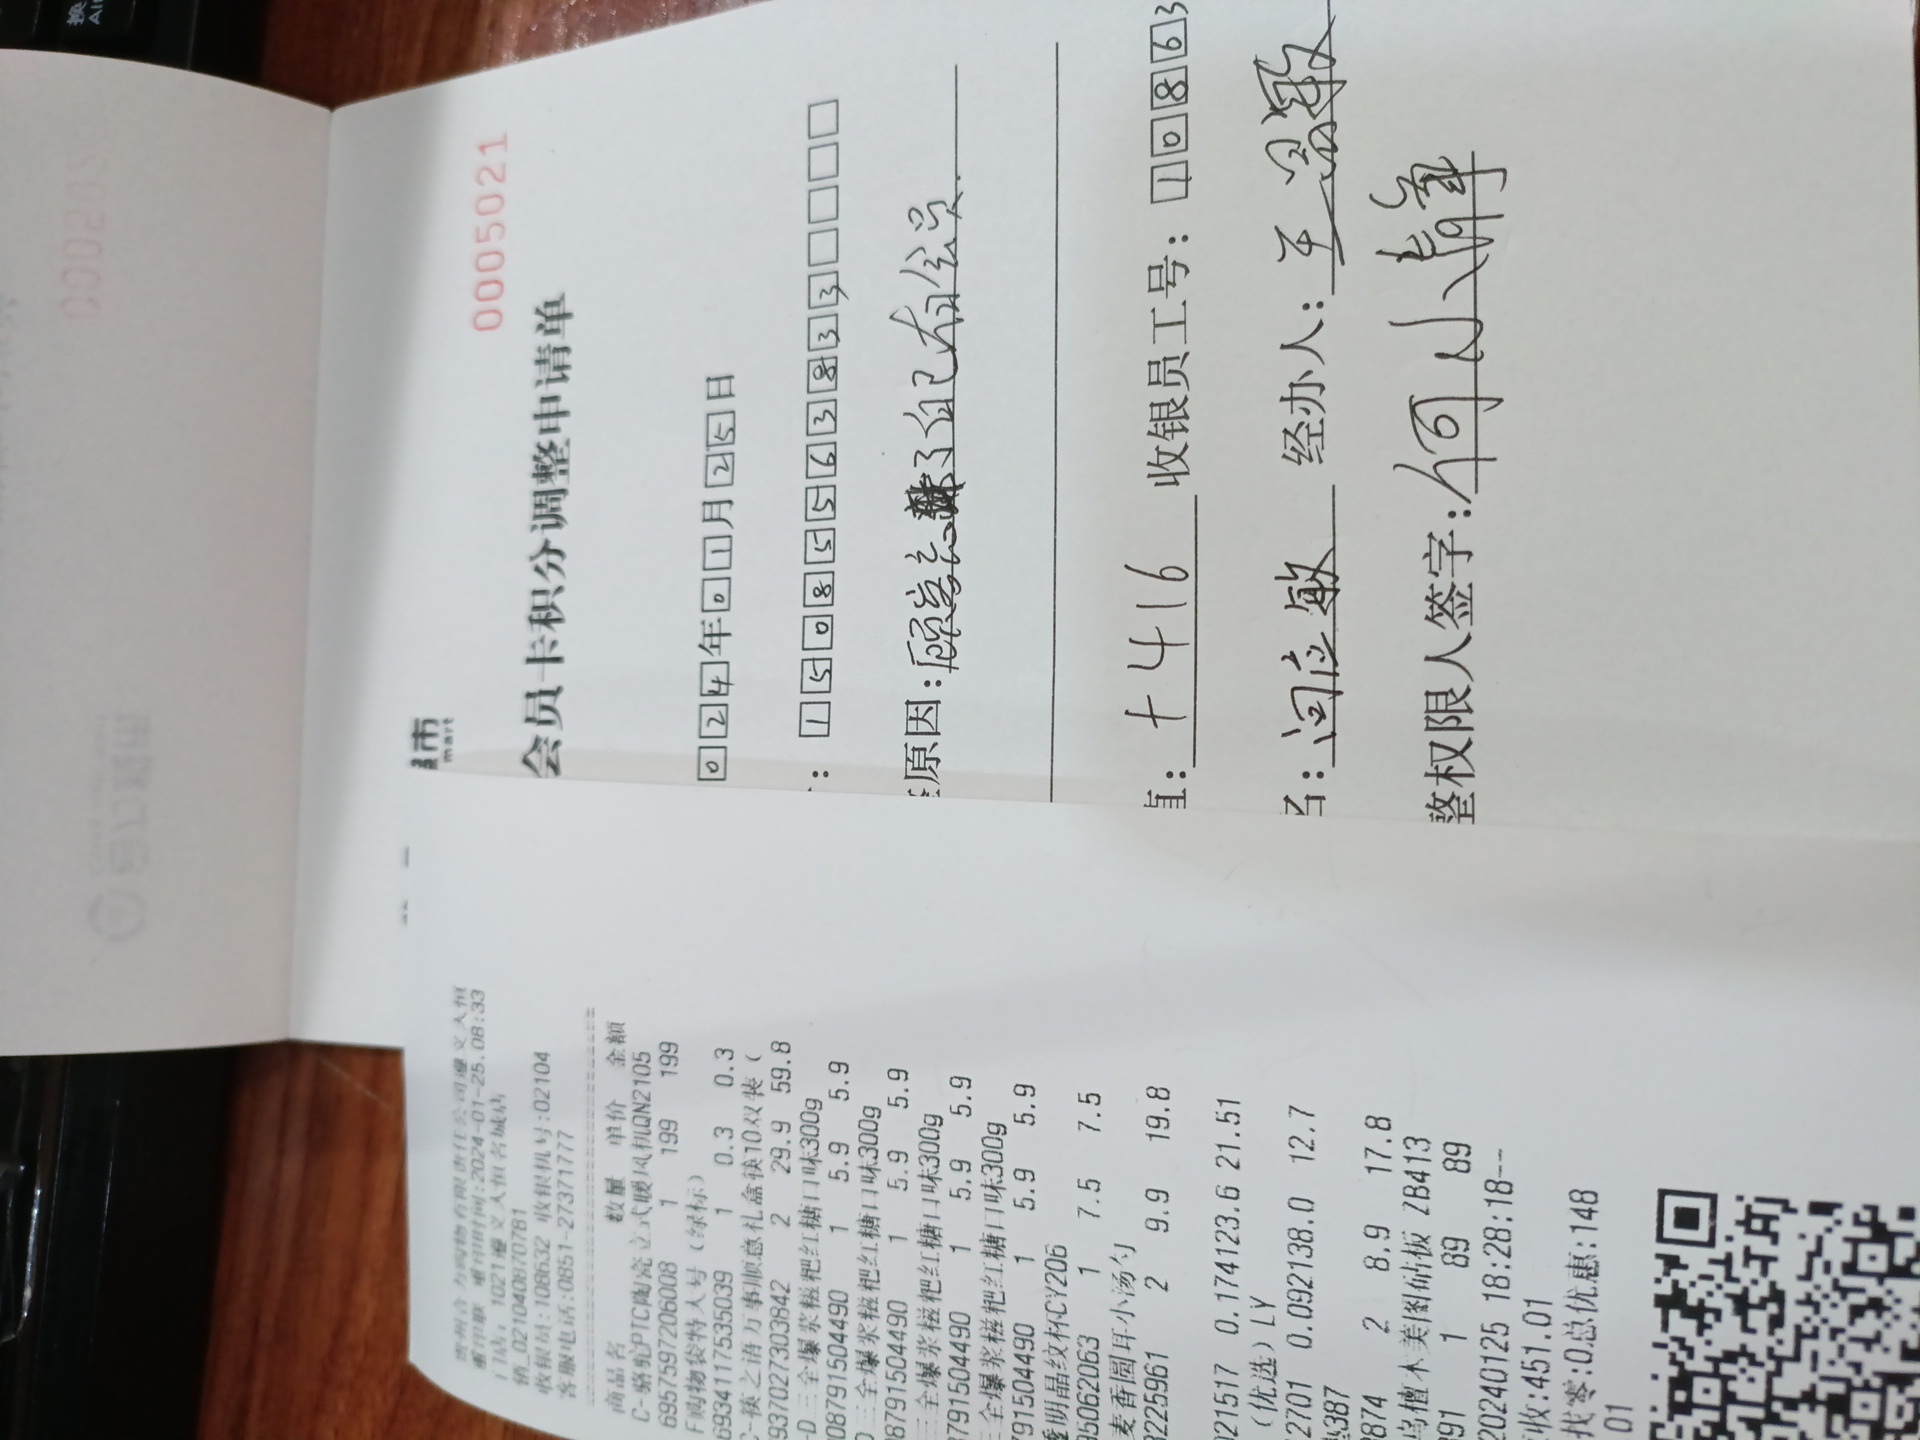 0005021
市
mart
会员卡积分调整申请单
024年01月25日
: 15085563833
原因:顾客忘 了自己有会员
直: +416 收银员工号: 10863
名: 闵应敏 经办人: 王
整权限人签字:何小
重印时间:2024-01-25.08:33
门店: 1021遵义人恒名城店
销_021040870781
收银员:108632 收银机号:02104
客服电话:0851-27371777
商品名 数量 单价 金额
C-骆驼PTC陶瓷立式暖风机QN2105
6957597206008 1 199 199
F购物袋特大号(绿标)
6934117535039 1 0.3 0.3
C-筷之语万事顺意礼盒筷10双装(
937027303842 2 29.9 59.8
-D 三全爆浆糍粑红糖口味300g
08791504490 1 5.9 5.9
D 三全爆浆糍粑红糖口味300g
8791504490 1 5.9 5.9
三全爆浆糍粑红糖口味300g
8791504490 1 5.9 5.9
三全爆浆糍粑红糖口味300g
791504490 1 5.9 5.9
明晶纹杯CY206
95062063 1 7.5 7.5
麦香圆耳小汤勺
2225961 2 9.9 19.8
021517 0.174123.6 21.51
(优选)LY
2701 0.092138.0 12.7
387
874 2 8.9 17.8
乌檀木美图砧板 ZB413
91 1 89 89
20240125 18:28:18--
收:451.01
找零:0总优惠:148
01
换
Al